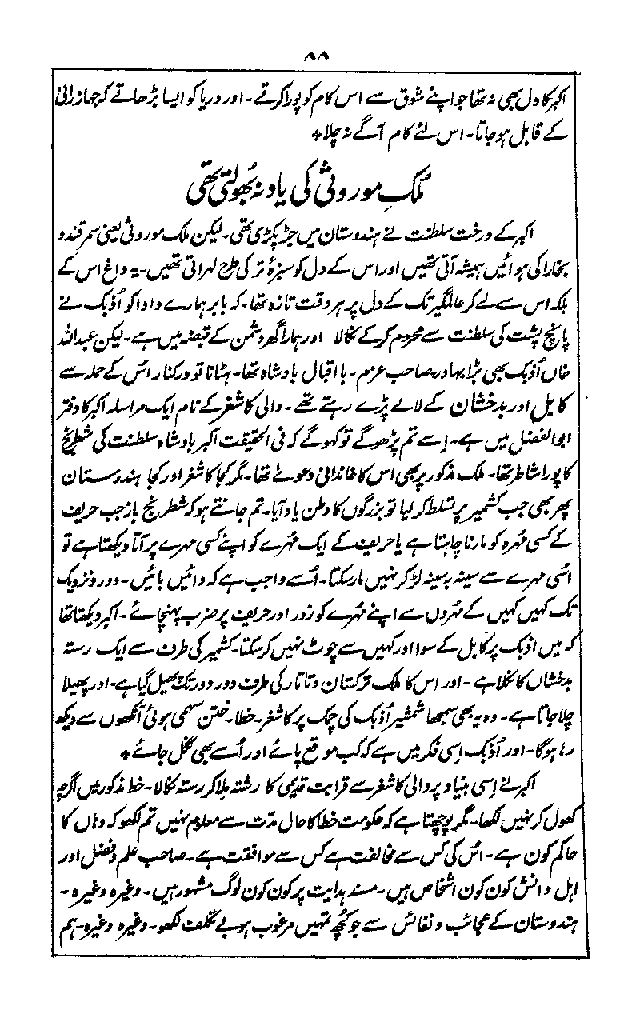 ۸۸
اکبر کا دل بھی نہ تھا جو اپنے شوق سے اس کام کو پورا کرتے - اور دریا کو ایسا بڑھاتے کہ جہازرانی
کے قابل ہو جاتا - اس لئے کام آگے نہ چلا +
ملک موروثی کی یاد نہ بھولتی تھی
اکبر کے درخت سلطنت نے ہندوستان میں جڑ پکڑی تھی - لیکن ملک موروثی یعنی سمرقند و
بخارا کی ہوائیں ہمیشہ آتی تھیں اور اس کے دل کو سبزۂ تر کی طرح لہراتی تھیں - یہ داغ اس کے
بلکہ اس سے لے کر عالمگیر تک کے دل پر ہر وقت تازہ تھا - کہ بابر ہمارے دادا کو اُذبک نے
پانچ پشت کی سلطنت سے محروم کر کے نکالا اور ہمارا گھر دشمن کے قبضہ میں ہے - لیکن عبداللہ
خاں اُذبک بھی بڑا بہادر صاحب عزم - با اقبال بادشاہ تھا - ہٹانا تو درکنار اُس کے حملہ سے
کابل اور بدخشان کے لالے پڑے رہتے تھے - والی کاشغر کے نام ایک مراسلہ اکبر کا دفتر
ابوالفضل میں ہے - اِسے تم پڑھو گے تو کہو گے کہ فی الحقیقت اکبر بادشاہ سلطنت کی شطرنج
کا پورا شاطر تھا - ملک مذکور پر بھی اس کا خاندانی دعوےٰ تھا - مگر کجا کاشغر اور کجا ہندوستان
پھر بھی جب کشمیر پر تسلط کر لیا تو بزرگوں کا وطن یاد آیا - تم جانتے ہو کہ شطرنج باز جب حریف
کے کسی مُہرہ کو مارنا چاہتا ہے یا حریف کے ایک مُہرے کو اپنے کسی مہرے پر آتا دیکھتا ہے تو
اُسی مہرے سے سینہ بسینہ لڑ کر نہیں مار سکتا - اُسے واجب ہے کہ دائیں بائیں - دور و نزدیک
تک کہیں کہیں کے مُہروں سے اپنے مُہرے کو زور اور حریف پر ضرب پہنچائے - اکبر دیکھتا تھا
کہ میں اُذبک پر کابل کے سوا اور کہیں سے چوٹ نہیں کر سکتا - کشمیر کی طرف سے ایک رستہ
بدخشاں کا نکلا ہے - اور اس کا ملک ترکستان و تاتار کی طرف دور دور تک پھیل گیا ہے - اور پھیلا
چلا جاتا ہے - وہ یہ بھی سمجھا شمشیر اُذبک کی چمک پر کاشغر - خطا - ختن سہمی ہوئی آنکھوں سے دیکھ
رہا ہوگا - اور اُذبک اِسی فکر میں ہے کہ کب موقع پائے اور اُسے بھی نگل جائے +
اکبر نے اِسی بنیاد پر والی کاشغر سے قرابت قدیمی کا رشتہ ملا کر رستہ نکالا - خط مذکور میں اگرچہ
کھول کر نہیں لکھا - مگر پوچھتا ہے کہ حکومت خطا کا حال مدت سے معلوم نہیں تم لکھو کہ وہاں کا
حاکم کون ہے - اُس کی کس سے مخالفت ہے کس سے موافقت ہے - صاحب علم و فضل اور
اہل دانش کون کون اشخاص ہیں - مسند ہدایت پر کون کون لوگ مشہور ہیں - وغیرہ وغیرہ -
ہندوستان کے عجائب و نفائس سے جو کچھ تمہیں مرغوب ہو بے تکلف لکھو - وغیرہ وغیرہ - ہم